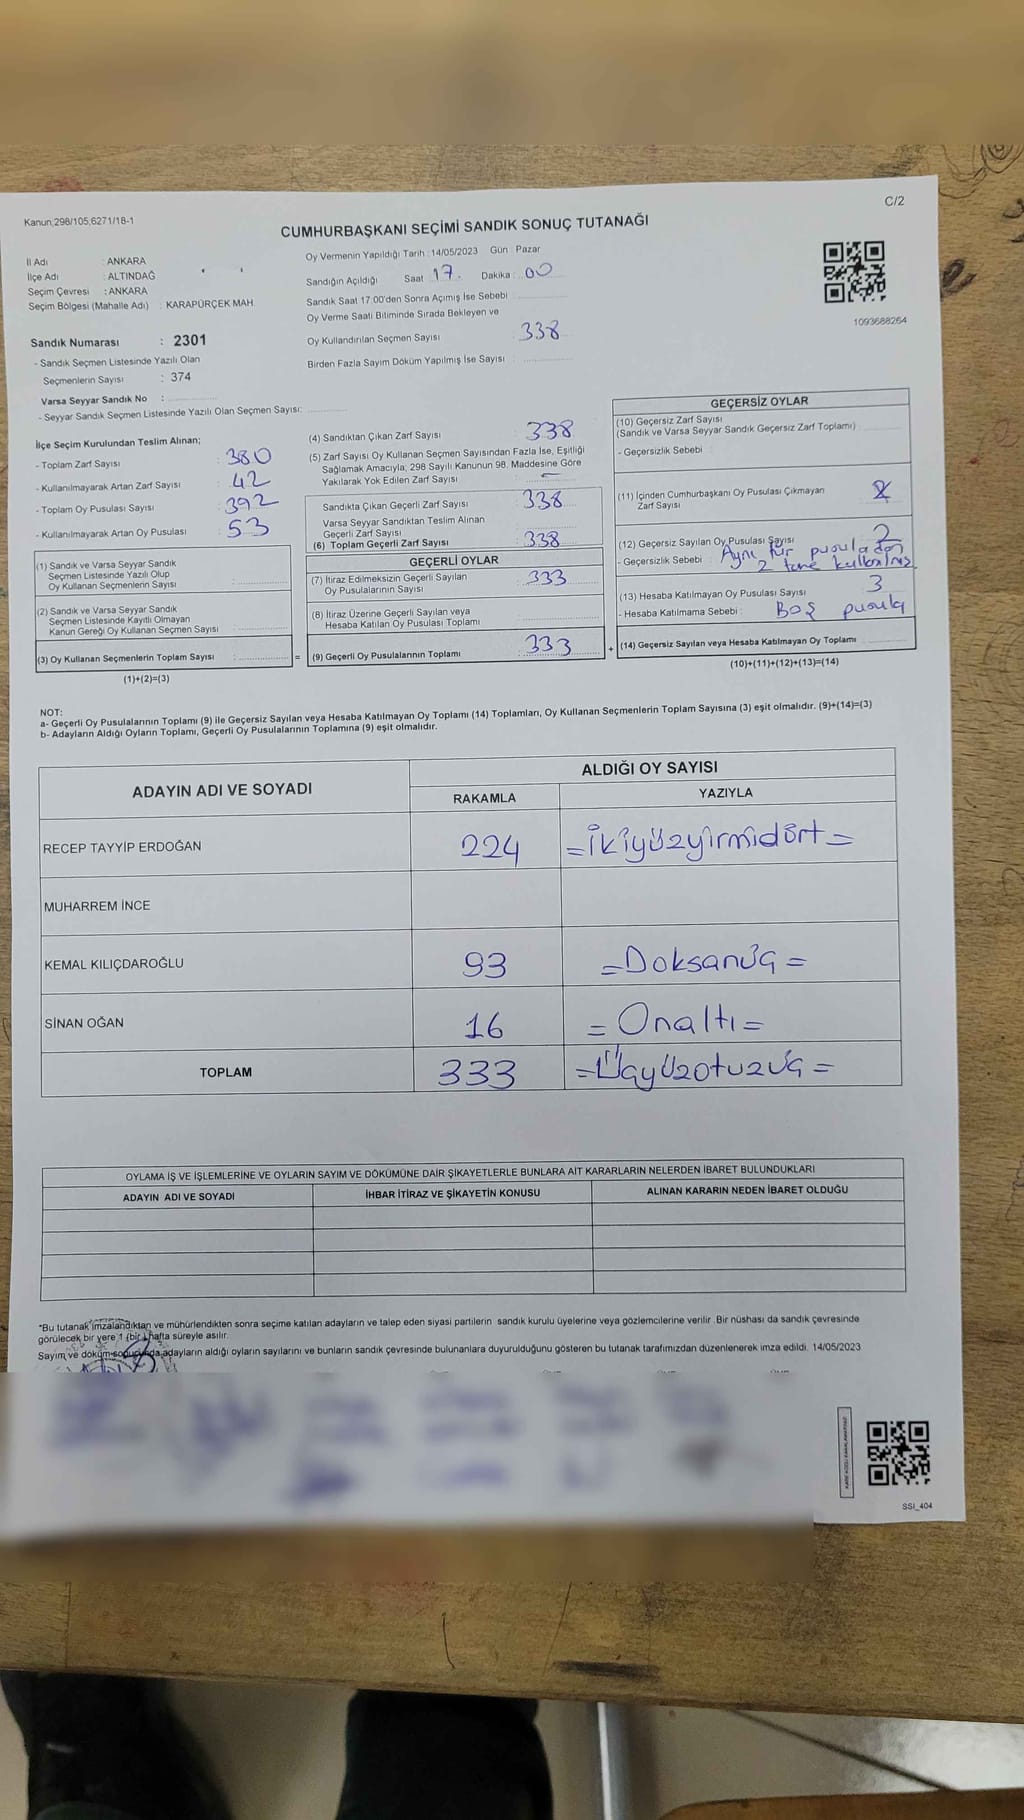 Kanun,298/105,6271/18-1
C/2
CUMHURBAŞKANI SEÇİMİ SANDIK SONUÇ TUTANAĞI
İl Adı : ANKARA
İlçe Adı : ALTINDAĞ
Seçim Çevresi : ANKARA
Seçim Bölgesi (Mahalle Adı) : KARAPÜRÇEK MAH.
Sandık Numarası : 2301
- Sandık Seçmen Listesinde Yazılı Olan
Seçmenlerin Sayısı : 374
Varsa Seyyar Sandık No :
- Seyyar Sandık Seçmen Listesinde Yazılı Olan Seçmen Sayısı:
Oy Vermenin Yapıldığı Tarih : 14/05/2023 Gün : Pazar
Sandığın Açıldığı Saat 17. Dakika : 00
Sandık Saat 17.00'den Sonra Açımış İse Sebebi :
Oy Verme Saati Bitiminde Sırada Bekleyen ve
Oy Kullandırılan Seçmen Sayısı : 338
Birden Fazla Sayım Döküm Yapılmış İse Sayısı :
1093688264
İlçe Seçim Kurulundan Teslim Alınan;
- Toplam Zarf Sayısı : 380
- Kullanılmayarak Artan Zarf Sayısı : 42
- Toplam Oy Pusulası Sayısı : 392
- Kullanılmayarak Artan Oy Pusulası : 53
(1) Sandık ve Varsa Seyyar Sandık
Seçmen Listesinde Yazılı Olup
Oy Kullanan Seçmenlerin Sayısı :
(2) Sandık ve Varsa Seyyar Sandık
Seçmen Listesinde Kayıtlı Olmayan
Kanun Gereği Oy Kullanan Seçmen Sayısı :
(3) Oy Kullanan Seçmenlerin Toplam Sayısı : =
(1)+(2)=(3)
(4) Sandıktan Çıkan Zarf Sayısı 338
(5) Zarf Sayısı Oy Kullanan Seçmen Sayısından Fazla İse, Eşitliği
Sağlamak Amacıyla, 298 Sayılı Kanunun 98. Maddesine Göre
Yakılarak Yok Edilen Zarf Sayısı : -
Sandıkta Çıkan Geçerli Zarf Sayısı : 338
Varsa Seyyar Sandıktan Teslim Alınan
Geçerli Zarf Sayısı
(6) Toplam Geçerli Zarf Sayısı : 338
GEÇERLİ OYLAR
(7) İtiraz Edilmeksizin Geçerli Sayılan
Oy Pusulalarının Sayısı : 333
(8) İtiraz Üzerine Geçerli Sayılan veya
Hesaba Katılan Oy Pusulası Toplamı :
(9) Geçerli Oy Pusulalarının Toplamı : 333 +
GEÇERSİZ OYLAR
(10) Geçersiz Zarf Sayısı
(Sandık ve Varsa Seyyar Sandık Geçersiz Zarf Toplamı)
- Geçersizlik Sebebi
(11) İçinden Cumhurbaşkanı Oy Pusulası Çıkmayan
Zarf Sayısı
(12) Geçersiz Sayılan Oy Pusulası Sayısı 2
- Geçersizlik Sebebi : Aynı tür pusuladan
2 tane kullanılmış
(13) Hesaba Katılmayan Oy Pusulası Sayısı 3
- Hesaba Katılmama Sebebi : Boş pusula
(14) Geçersiz Sayılan veya Hesaba Katılmayan Oy Toplamı
(10)+(11)+(12)+(13)=(14)
NOT:
a- Geçerli Oy Pusulalarının Toplamı (9) ile Geçersiz Sayılan veya Hesaba Katılmayan Oy Toplamı (14) Toplamları, Oy Kullanan Seçmenlerin Toplam Sayısına (3) eşit olmalıdır. (9)+(14)=(3)
b- Adayların Aldığı Oyların Toplamı, Geçerli Oy Pusulalarının Toplamına (9) eşit olmalıdır.
ADAYIN ADI VE SOYADI
ALDIĞI OY SAYISI
RAKAMLA YAZIYLA
RECEP TAYYİP ERDOĞAN 224 =İkiyüzyirmidört=
MUHARREM İNCE
KEMAL KILIÇDAROĞLU 93 =Doksanüç=
SİNAN OĞAN 16 =Onaltı=
TOPLAM 333 =Üçyüzotuzüç=
OYLAMA İŞ VE İŞLEMLERİNE VE OYLARIN SAYIM VE DÖKÜMÜNE DAİR ŞİKAYETLERLE BUNLARA AİT KARARLARIN NELERDEN İBARET BULUNDUKLARI
ADAYIN ADI VE SOYADI İHBAR İTİRAZ VE ŞİKAYETİN KONUSU ALINAN KARARIN NEDEN İBARET OLDUĞU
*Bu tutanak imzalandıktan ve mühürlendikten sonra seçime katılan adayların ve talep eden siyasi partilerin sandık kurulu üyelerine veya gözlemcilerine verilir. Bir nüshası da sandık çevresinde
görülecek bir yere 1 (bir) hafta süreyle asılır.
Sayım ve döküm sonucunda adayların aldığı oyların sayılarını ve bunların sandık çevresinde bulunanlara duyurulduğunu gösteren bu tutanak tarafımızdan düzenlenerek imza edildi. 14/05/2023
SSI_404